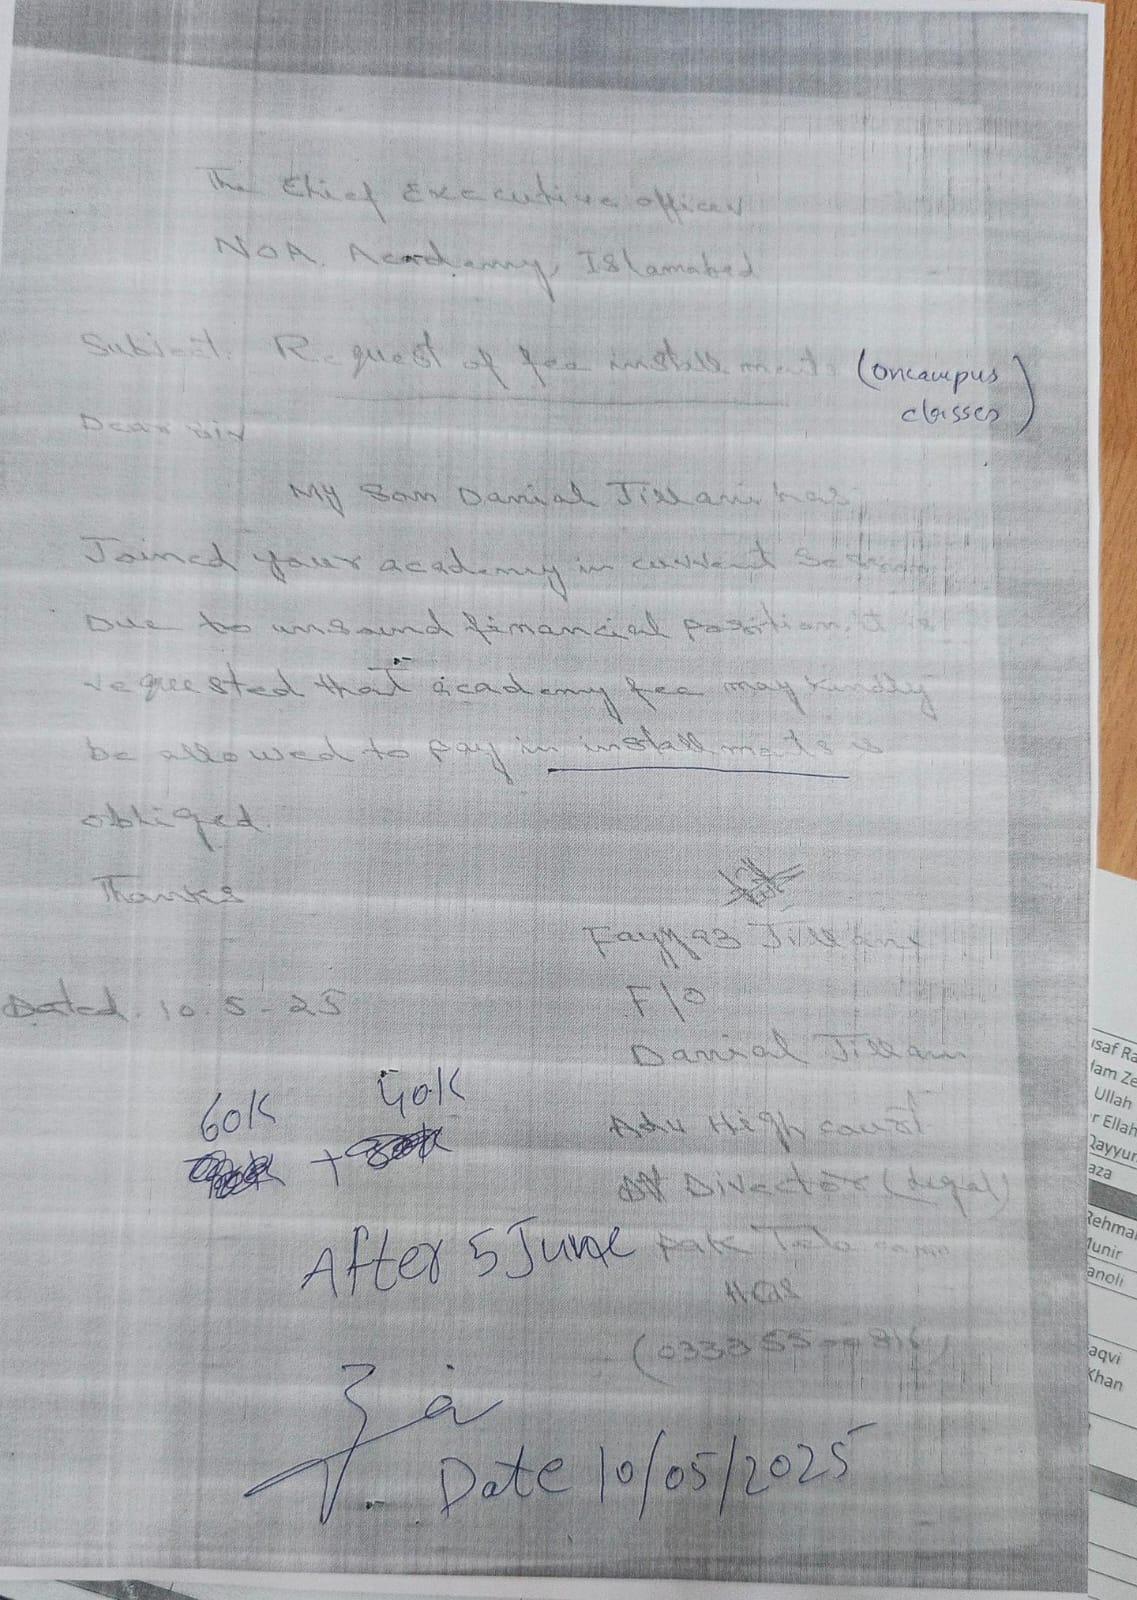 The Chief Executive officer
NOA. Academy, Islamabad
Subject. Request of fee installments (oncampus
classes)
Dear Sir
My Son Danial Jillani has
Joined your academy in current Session
Due to unsound financial position. It is
requested that academy fee may kindly
be allowed to pay in installments is
obliged.
Thanks
Fayyaz Jillani
Dated. 10.5-25
F/O
Danial Jillani
60K 40K
+
Adv High court
Director (Legal)
After 5 June Pak Tele
HQs
Date 10/05/2025
Ullah
Qayyum
aza
Rehman
Munir
anoli
aqvi
Khan